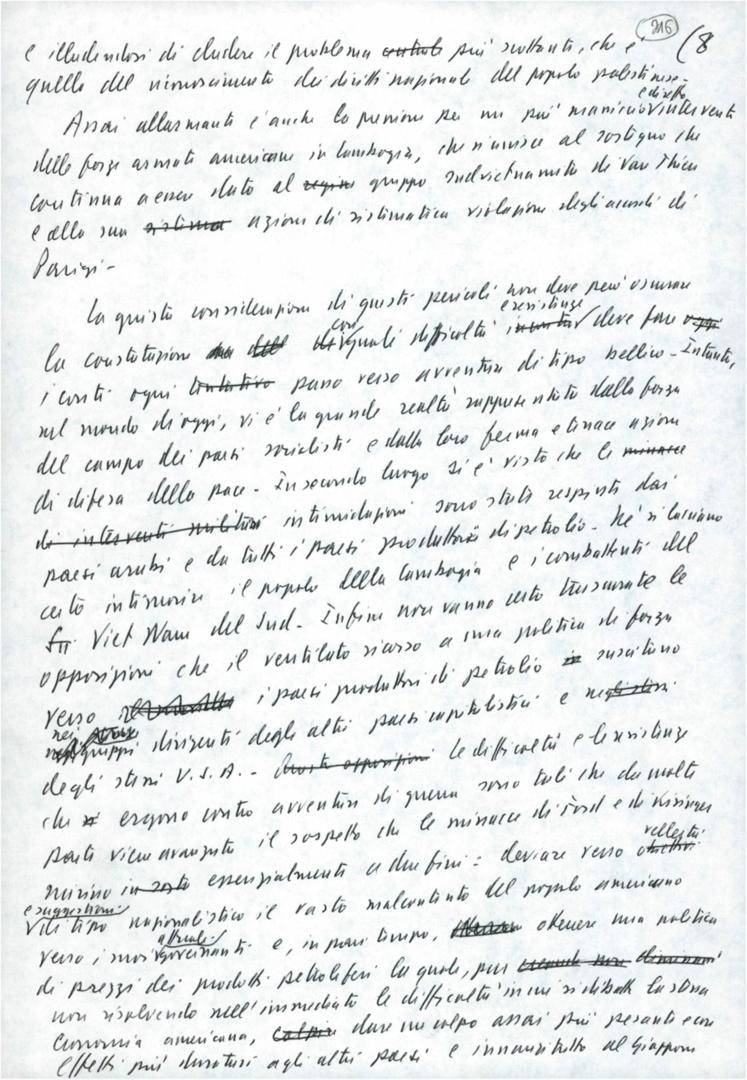 216
(8
e illudendosi di eludere il problema centrale più scottante, che è
quello del riconoscimento dei diritti nazionali del popolo palestinese-
Assai allarmante è anche la pressione per un più massiccio e diretto intervento
delle forze armate americane in Cambogia, che si unisce al sostegno che
continua a essere dato al regime gruppo sudvietnamita di Van Thieu
e alla sua sistema azione di sistematica violazione degli accordi di
Parigi-
La giusta considerazione di questi pericoli non deve però oscurare
la constatazione con quali difficoltà e resistenze deve fare oggi
i conti ogni tentativo passo verso avventure di tipo bellico- Intanto,
nel mondo di oggi, vi è la grande realtà rappresentata dalla forza
del campo dei paesi socialisti e dalla loro ferma e tenace azione
di difesa della pace- In secondo luogo si è visto che le minacce
di interventi militari intimidazioni sono state respinte dai
paesi arabi e da tutti i paesi produttori di petrolio- Né si lasciano
certo intimorire il popolo della Cambogia e i combattenti del
Viet Nam del Sud- Infine non vanno certo trascurate le
opposizioni che il ventilato ricorso a una politica di forza
verso i paesi produttori di petrolio suscitano
nei gruppi dirigenti degli altri paesi capitalistici e negli stessi
degli stessi U.S.A.- Queste opposizioni le difficoltà e le resistenze
che si ergono contro avventure di guerra sono tali che da molte
parti viene avanzato il sospetto che le minacce di Ford e di Kissinger
mirino essenzialmente a due fini: deviare verso obiettivi velleità
e suggestioni di tipo nazionalistico il vasto malcontento del popolo americano
verso i suoi attuali governanti e, in pari tempo, ottenere una politica
di prezzi dei prodotti petroliferi la quale, pur
non risolvendo nell'immediato le difficoltà in cui si dibatte la stessa
economia americana, colpire dare un colpo assai più pesante e con
effetti più duraturi agli altri paesi e innanzitutto al Giappone